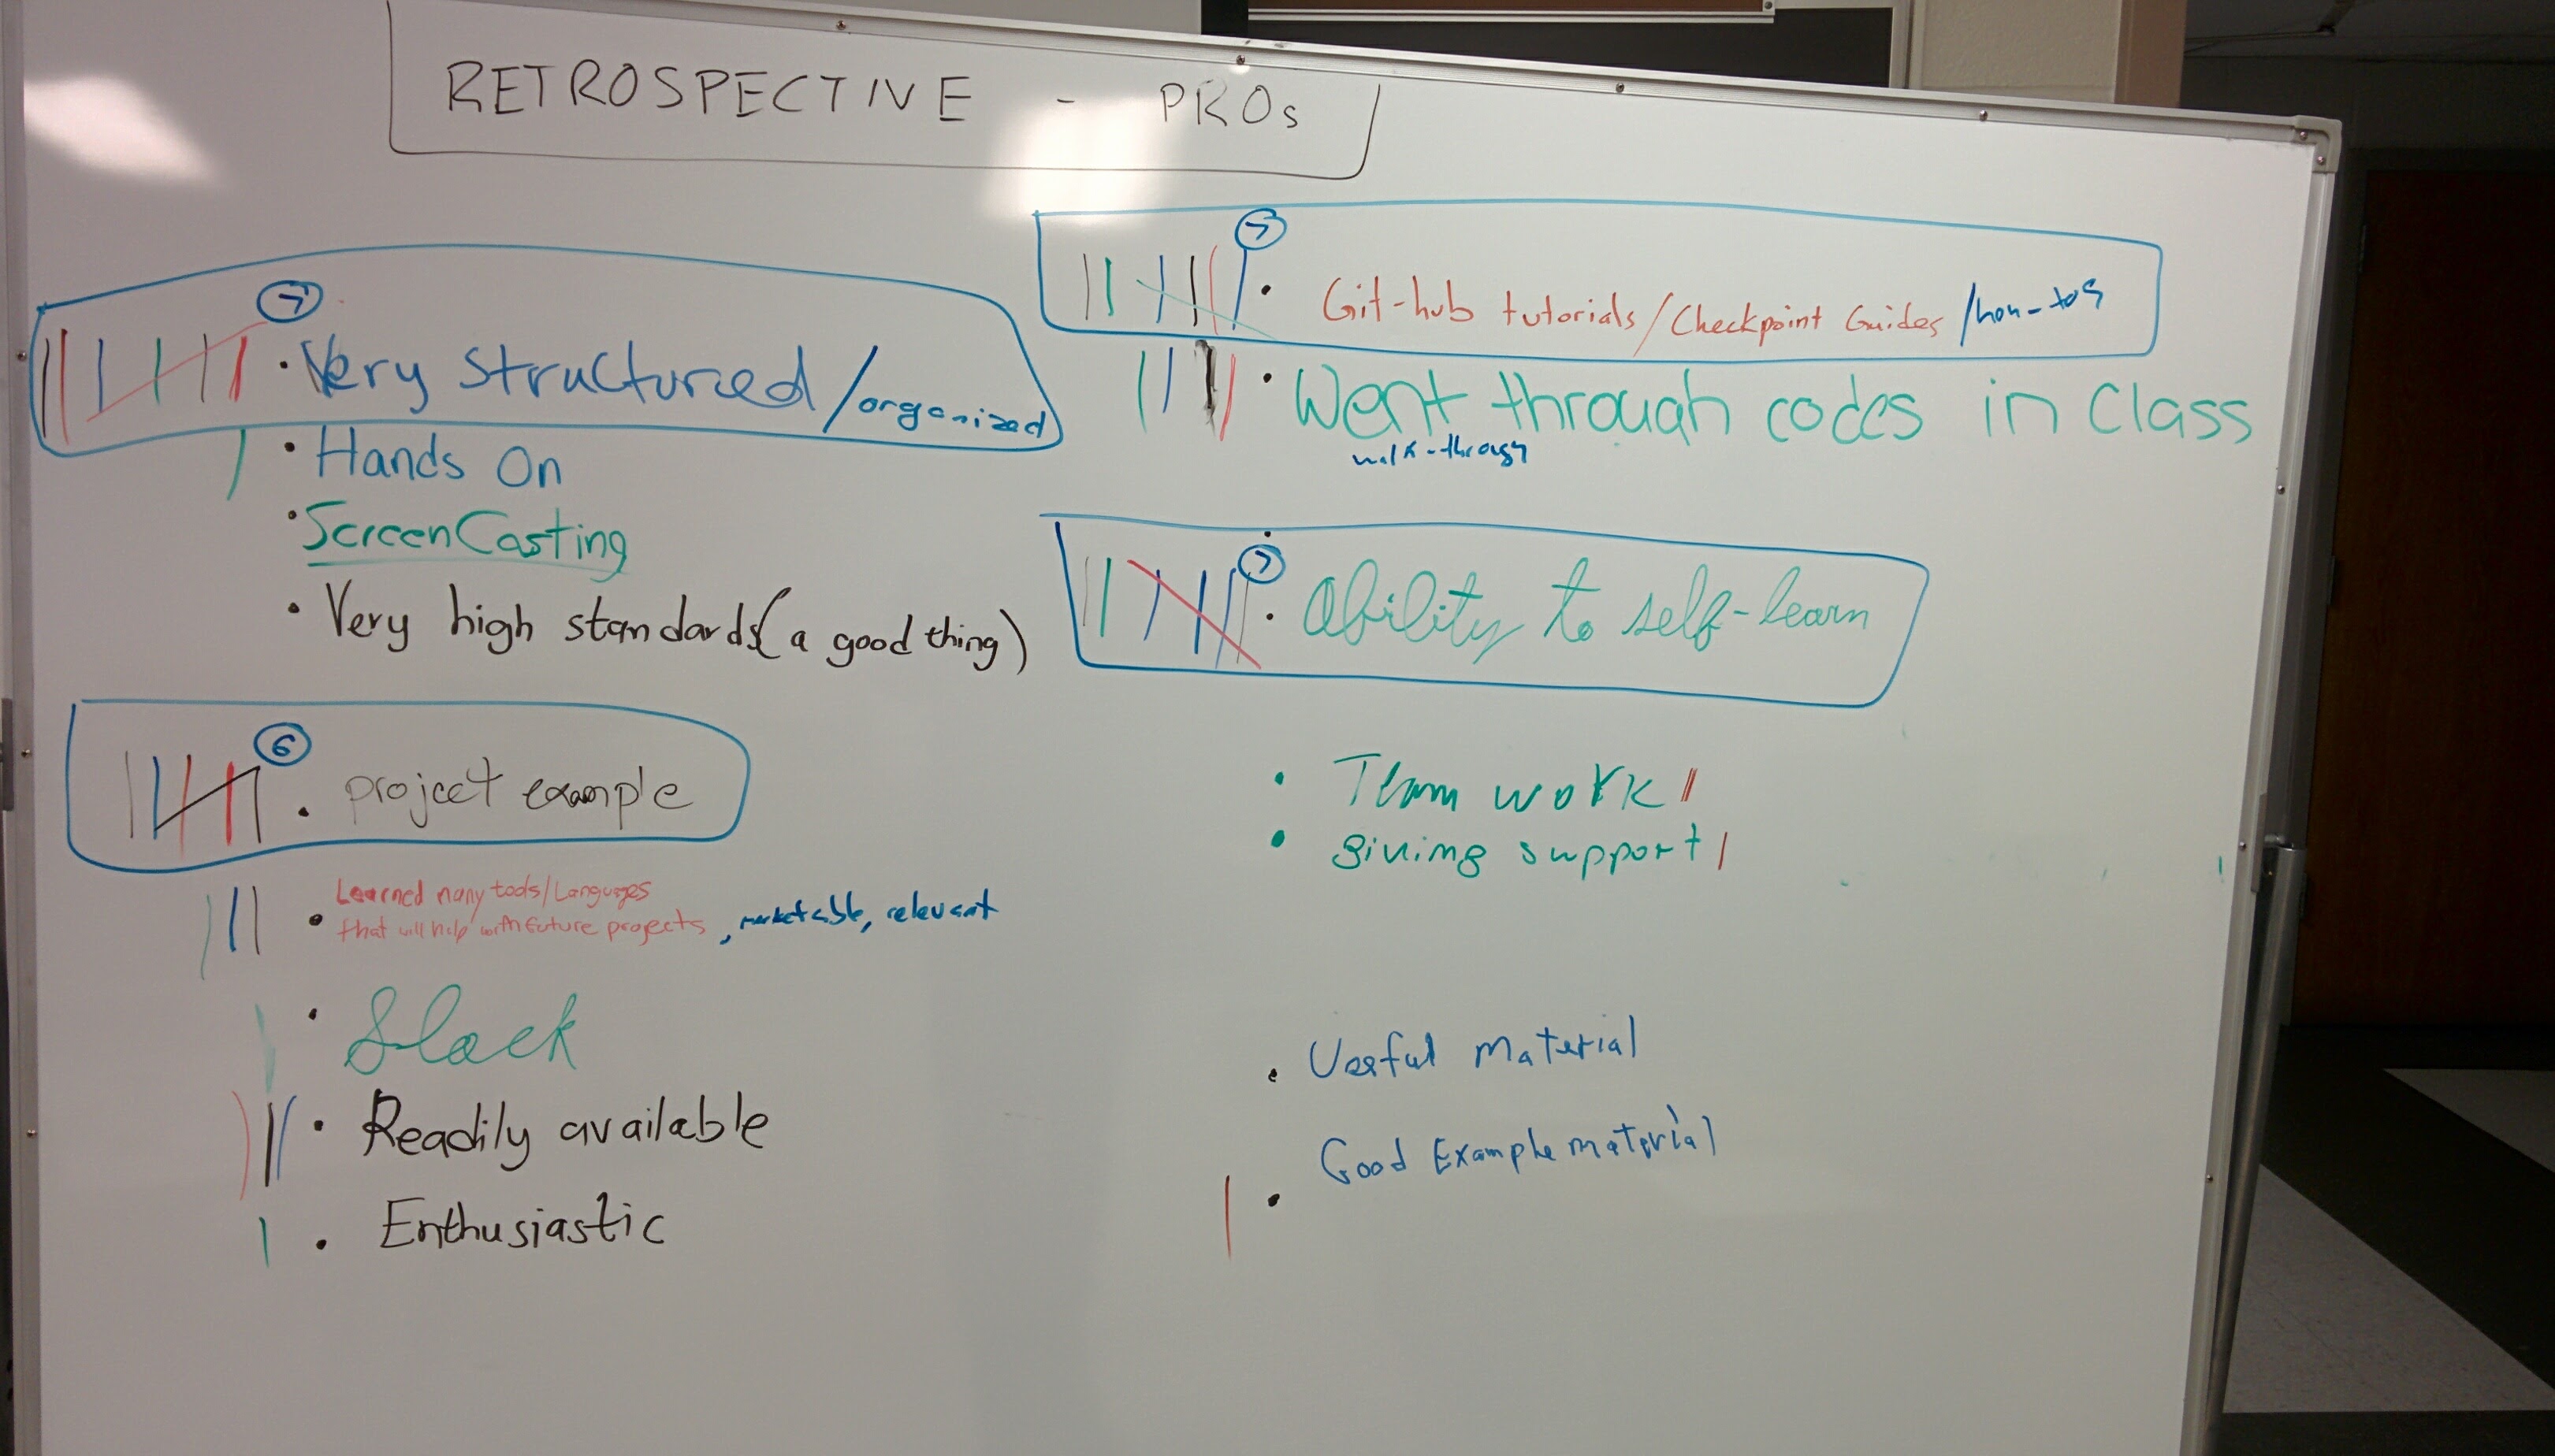 RETROSPECTIVE - PROs
7
• Very structured/organized
• Hands On
• ScreenCasting
• Very high standards (a good thing)
6
• project example
• Learned many tools/Languages
that will help with future projects, marketable, relevant
• Slack
• Readily available
• Enthusiastic
7
• Git-hub tutorials/Checkpoint Guides/how-tos
• Went through codes in Class
walk-through
7
• Ability to self-learn
• Team work
• giving support
• Useful Material
• Good Example material